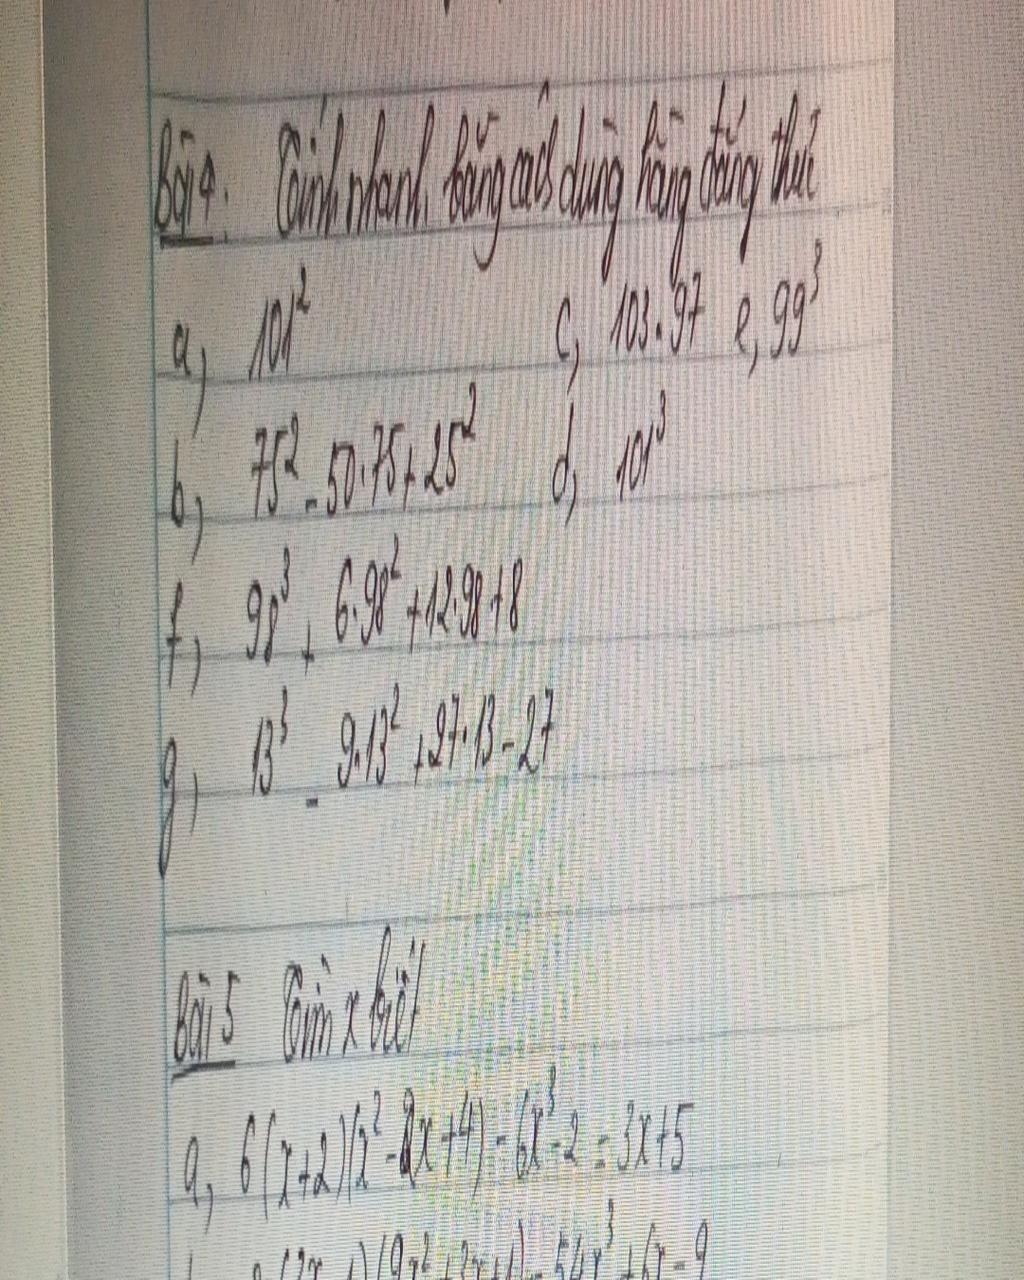 Bài 4: Tính nhanh bằng cách dùng hằng đẳng thức
a, 101² c, 103.97 e, 99³
b, 75² - 50.75 + 25² d, 101³
f, 98³ + 6.98² + 12.98 + 8
g, 13³ - 9.13² + 27.13 - 27
Bài 5 Tìm x biết
a, 6(x+2)(x² - 2x + 4) - 6x³ - 2 = 3x + 5